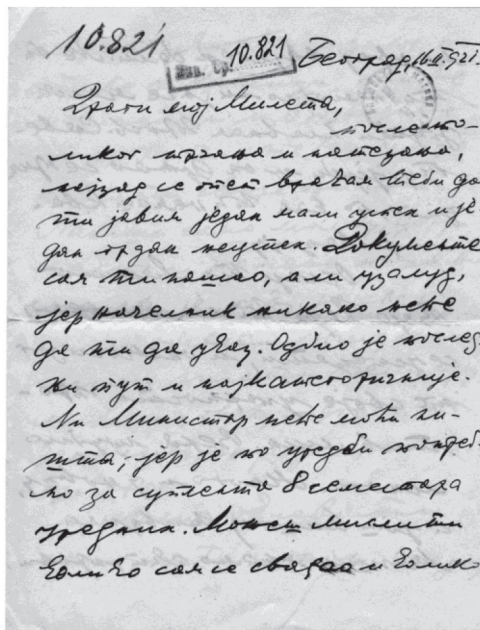 10.821
Инв. бр. 10.821
Београд, 16.II.921.
Драги мој Милета,
после то-
ликог трчања и натезања,
најзад се опет враћам теби да
ти јавим један мали успех и је
дан грдан неуспех. Документе
сам ти нашао, али узалуд,
јер начелник никако неће
да ти да указ. Одбио је послед
њи пут и најкатегоричније.
Ни Министар неће моћи ни-
шта, јер је по уредби потреб-
но за суплента 8 семестара
уредних. Можеш мислити
колико сам се свађао и колико